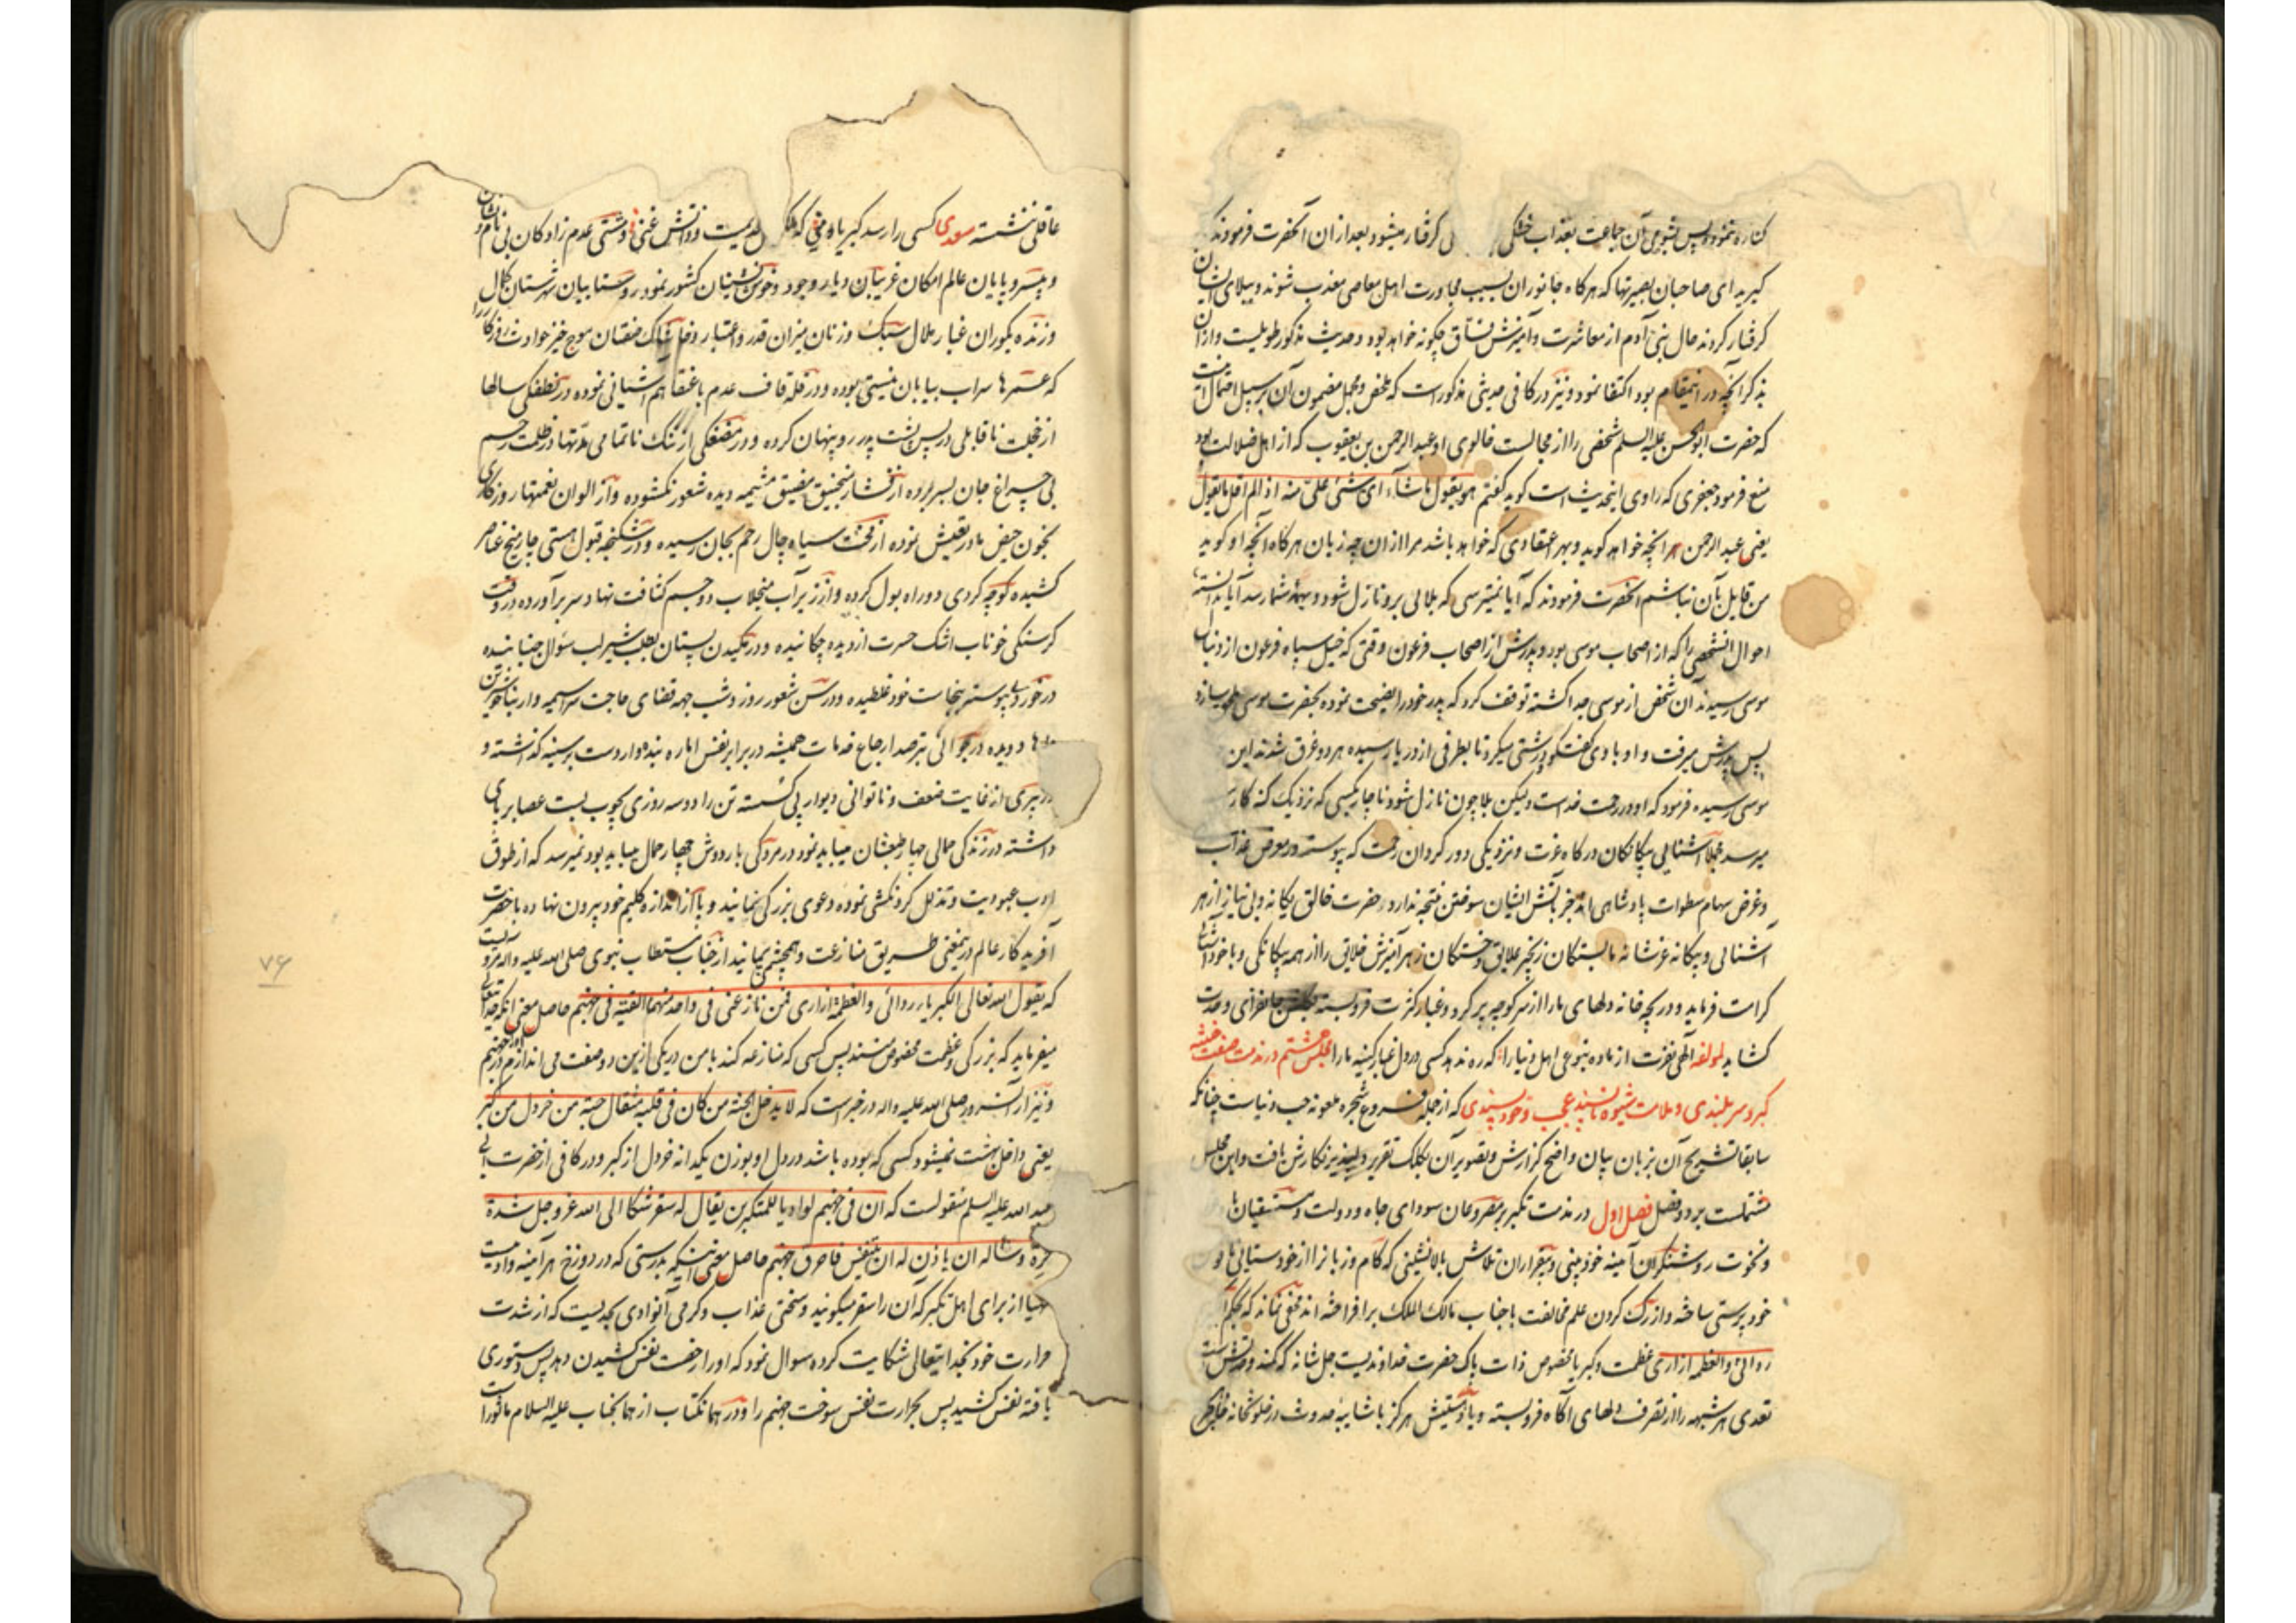 کناره ننمودند پس بشومی آن جماعت بعذاب خشکی گرفتار میشود بعد ازان آنحضرت فرمودند که
گیرید ای صاحبان بصیرتها که هرگاه جانوران بسبب مجاورت اهل معاصی معذب شوند و ببلای ایشان
گرفتار گردند حال بنی آدم از معاشرت و آمیزش فساق چگونه خواهد بود و حدیث مذکور طویلست و ازان
بذکر آنچه در اینمقام بود اکتفا نمود و نیز در کافی حدیثی مذکور است که ملخص و مجمل مضمون آن بر سبیل اجمال
که حضرت ابوالحسن علیه السلم شخصی را از مجالست خالوی او عبد الرحمن بن یعقوب که از اهل ضلالت بود
منع فرمود جعفری که راوی اینحدیث است گوید گفتم هو یقول ماشاء ای شئی علی منه اذا لم اقل ما یقول
یعنی عبد الرحمن هر آنچه خواهد گوید و بهر اعتقادی که خواهد باشد مرا ازان چه زیان هرگاه آنچه او گوید
من قایل بآن نباشم آنحضرت فرمودند که آیا نمیترسی که بلائی برو نازل شود و بهمه شما رسد آیا ندانسته
احوال آنشخصی را که از اصحاب موسی بود و پدرش از اصحاب فرعون وقتی که خیل سپاه فرعون از دنبال
موسی رسیدند آن شخص از موسی جدا گشته توقف کرد که پدر خود را نصیحت نموده بحضرت موسی ملحق سازد
پس پدرش میرفت و او با وی گفتگو و درشتی میکرد تا بطرفی از دریا رسیده هر دو غرق شدند این
موسی رسیده فرمود که او در رحمت خداست ولیکن بلا چون نازل شود ناچار بکسی که نزدیک گنه کار
میرسد مجملا آشنایی بیگانگان درگاه عزت و نزدیکی دور گردان رحمت که پیوسته در معرض عذاب
و غرض سهام سطوات پادشاهی اند جز بآتش ایشان سوختن نتیجه ندارد حضرت خالق یگانه و بی نیاز از هر
آشنائی و بیگانه عز شانه ما بستگان زنجیر علایق و خستگان زهر آمیزش خلایق را از همه بیگانگی و با خود آشنائی
کرامت فرماید و دریچه خانه دلهای ما را از سر کوچه پر گرد و غبار کثرت فرو بسته جانفزای وحدت
گشاید لمولفه الهی نفرت از ما ده بنوعی اهل دنیا را که ره ندهد کسی در دل غبار کینه ما را مجلس هشتم در مذمت صفت خبیثه
کبر و سر بلندی و ملامت شیوه ناپسند عجب و خود پسندی که از جمله فروع شجره ملعونه حب دنیاست چنانکه
سابقا تشریح آن بزبان بیان واضح گزارش و تصویر آن بکلک تقریر دلپذیر نگارش یافت و این مجلس
مشتملست بر دو فصل فصل اول در مذمت تکبر مصروعان سودای جاه و دولت و مستسقیان
و نخوت روشنگران آیینه خودبینی و بیقراران تلاش بالانشینی که کام و زبانرا از خودستایی
خود پرستی ساخته و از رگ گردن علم مخالفت با جناب مالک الملک برافراخته اند مخفی نماند که بحکم
ردائی و العظمه ازاری عظمت و کبریا مخصوص ذات پاک حضرت خداوندیست جل شانه که کنه
تعدی هر شبهه را از تصرف دلهای آگاه فرو بسته هرگز با شایبه حدوث در خلوتخانه
عاقلی ننشسته سعدی کسی را رسد کبریا و منی که ملکش قدیمست و ذاتش غنی و مشتی عدم زادگان بی نام و نشان
و بیسر و پایان عالم امکان غریبان دیار وجود و خوش نشینان کشور نمود روستاییان شهرستان کمال
و زنده بگوران غبار ملال سبک وزنان میزان قدر و اعتبار و خاشاک صفتان موج خیز حوادث روزگار را
که عمرها سراب بیابان نیستی بوده و در قله قاف عدم با عنقا هم آشیانی نموده در نطفگی سالها
از خجلت ناقابلی در پس پشت پدر رو پنهان کرده و در مضغگی از ننگ ناتمامی مدتها در ظلمت رحم
بی چراغ جان بسر برده از فشار منجنیق مضیق مشیمه دیده شعور نگشوده و از الوان نعمتها روزگاری
بخون حیض مادر تعیش نموده از محنت سیاه چال رحم بجان رسیده و در شکنجه قبول هستی چار میخ عناصر
کشیده کوچه گردی دو راه بول کرده و از زیر آب منجلاب دو جسم کثافت نهاد سر برآورده در وقت
گرسنگی خوناب اشک حسرت از دیده چکانیده و در مکیدن پستان بطلب شیر لب سؤال جنبانیده
در خوردی پیوسته بنجاست خود غلطیده و در سن شعور روز و شب جهة قضای حاجت سراسیمه وار
دویده در جوانی بترصد ارجاع خدمات همیشه در برابر نفس اماره بنده وار دست بر سینه گذاشته و
در پیری از غایت ضعف و ناتوانی دیوار پی گسسته تن را دو سه روزی بچوب بست عصا بر پای
داشته در زندگی حمالی چهار طبعشان میباید نمود و در مردگی بار دوش چهار حمال میباید بود نمیرسد که از طوق
ادب عبودیت و تذلل گردنکشی نموده دعوی بزرگی نمایند و پا از اندازه گلیم خود بیرون نهاده با حضرت
آفریدگار عالم در یمعنی طریق منازعت و همچشمی پیمایند از جناب مستطاب نبوی صلی الله علیه و اله مرویست
که یقول الله تعالی الکبریا ردائی و العظمة ازاری فمن نازعنی فی واحد منهما القیته فی جهنم حاصل معنی آنکه خدایتعالی
میفرماید که بزرگی و عظمت مخصوص منند پس کسی که منازعه کند با من در یکی ازین دو صفت می اندازم او را در جهنم
و نیز از آنسرور صلی الله علیه و اله در خبر است که لا یدخل الجنة من کان فی قلبه مثقال حبة من خردل من کبر
یعنی داخل بهشت نمیشود کسی که بوده باشد در دل او بوزن یکدانه خردل از کبر و در کافی از حضرت ابی
عبد الله علیه السلم منقولست که ان فی جهنم لوادیا للمتکبرین یقال له سقر شکا الی الله عز و جل شدة
حره و ساله ان یاذن له ان یتنفس فتنفس فاحرق جهنم حاصل معنی اینکه بدرستی که در دوزخ هر آینه وادیست
مهیا از برای اهل تکبر که آن را سقر میگویند و سختی عذاب و گرمی آنوادی بحدیست که از شدت
حرارت خود بخدایتعالی شکایت کرده سوال نمود که او را رخصت نفس کشیدن دهد پس دستوری
یافته نفس کشید پس بحرارت نفس سوخت جهنم را و در همان کتاب از همانجناب علیه السلام ماثور است
۷۶